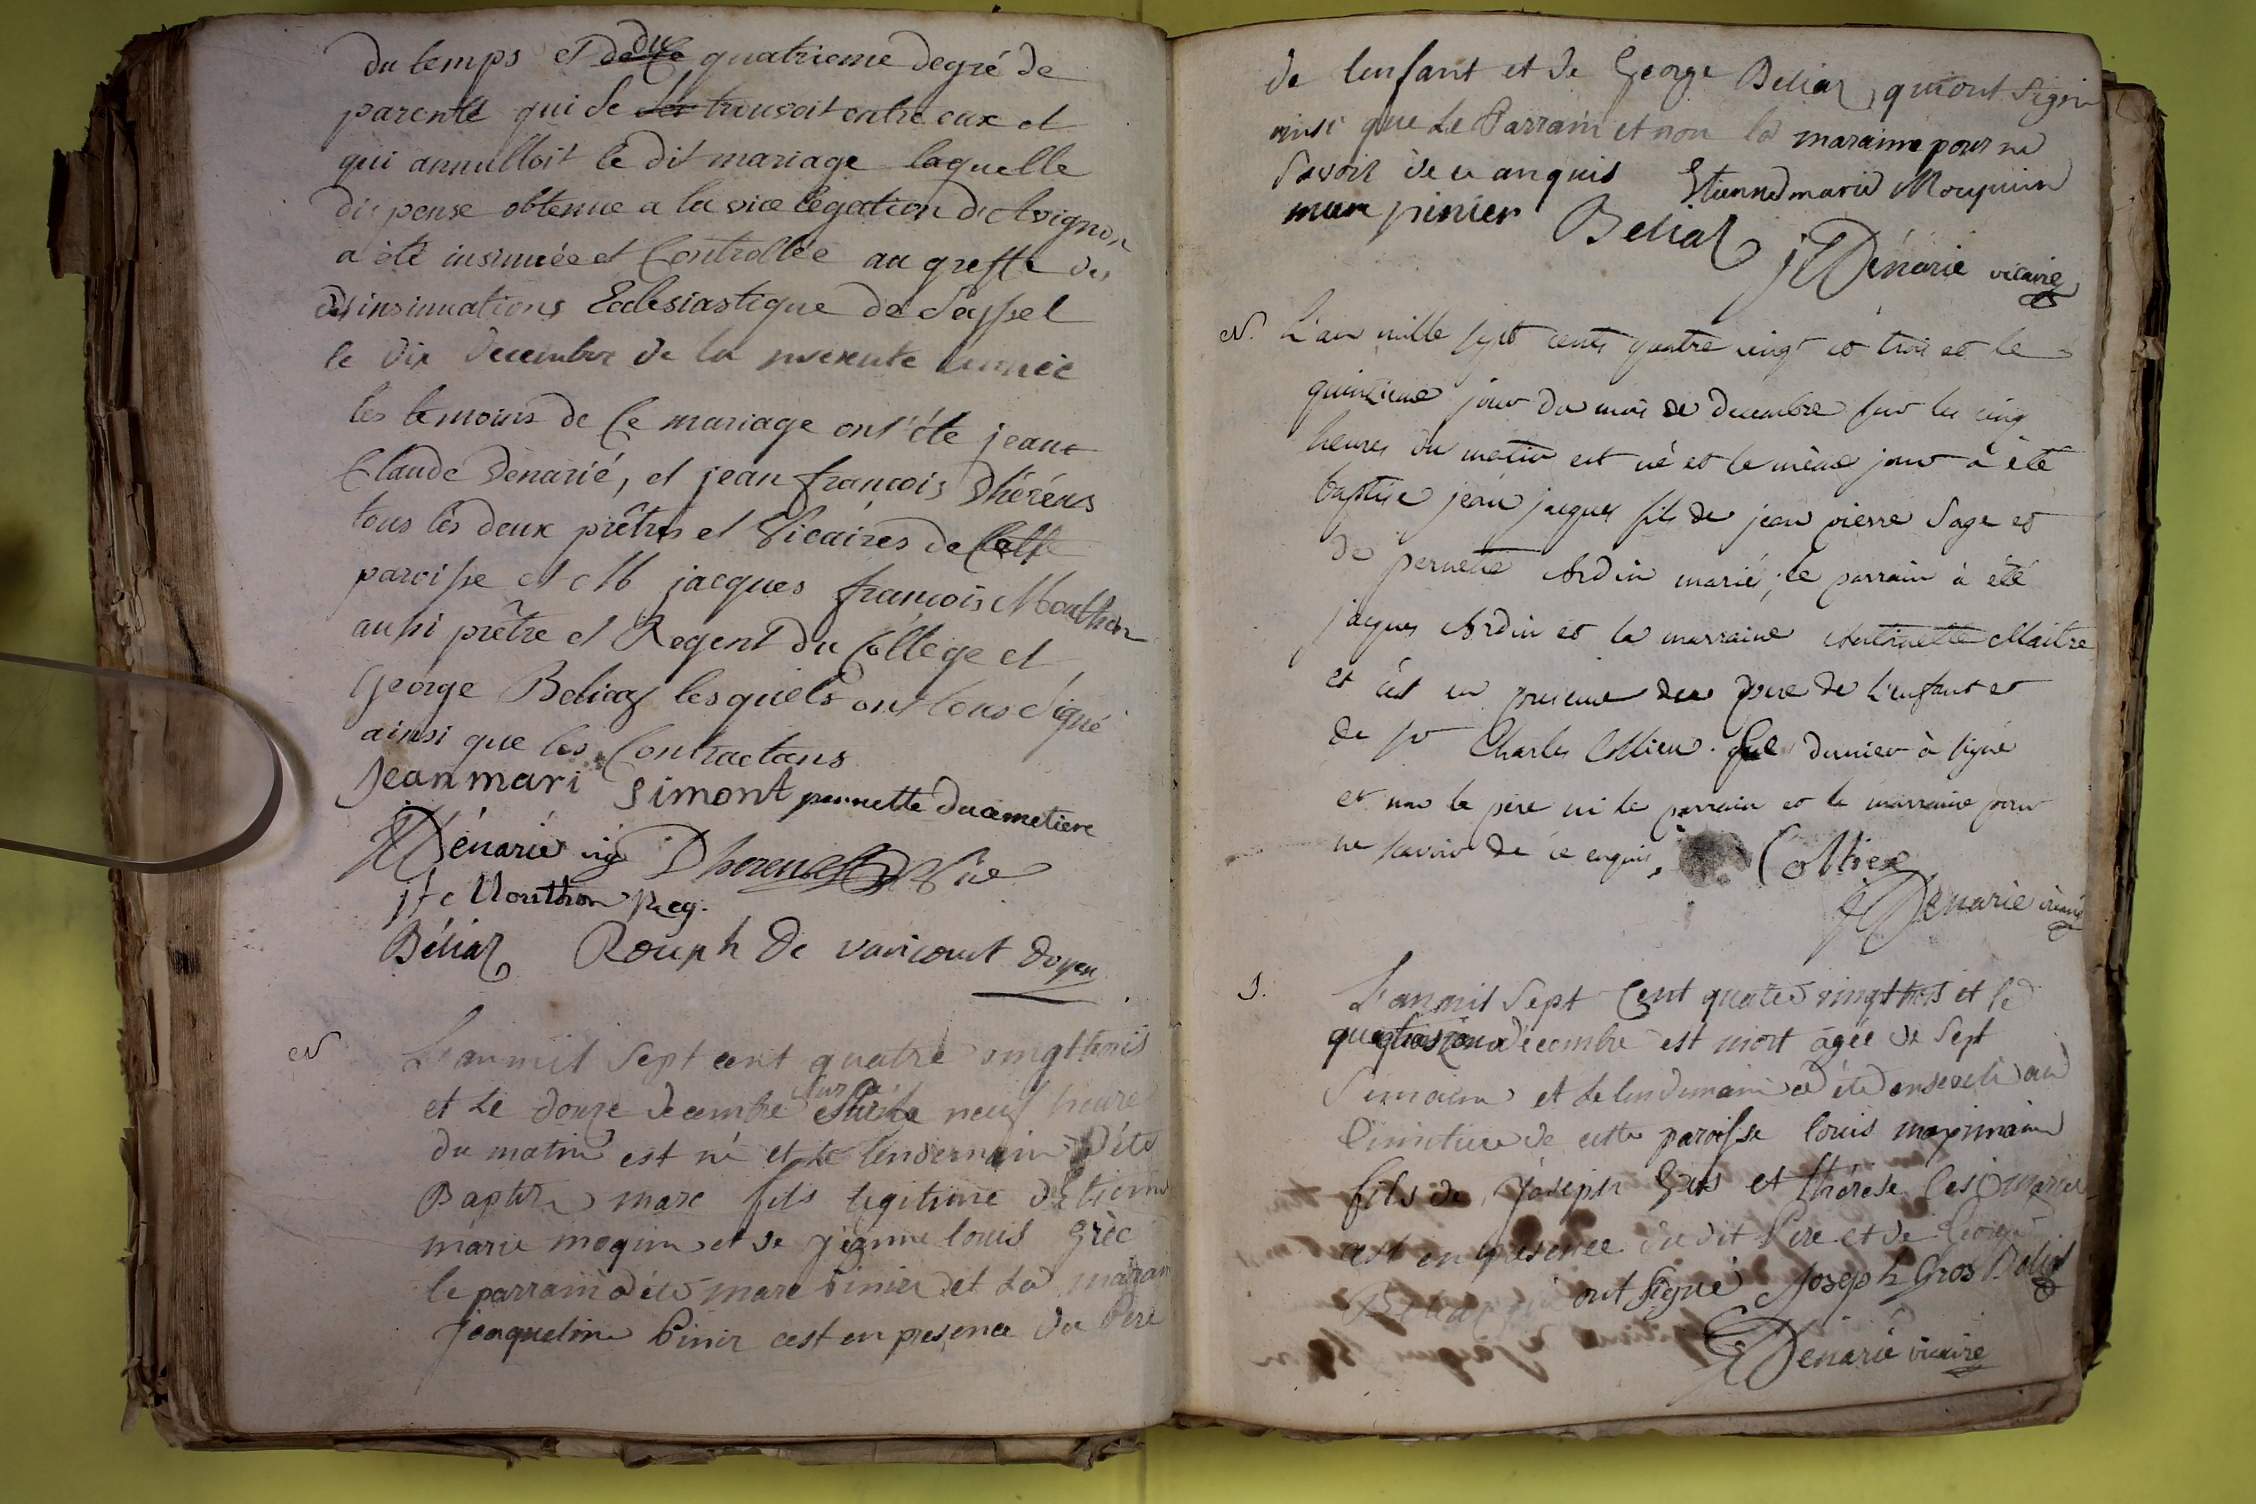 du temps et du quatrieme degré de
parenté qui se trouvoit entre eux et
qui annulloit le dit mariage laquelle
dispense obtenue a la vice légation d'Avignon
a été insinuée et Controllée au greffe des
des insinuations Ecclesiastique de Seyssel
le dix decembre de la presente année
les temoins de Ce mariage ont été jean
Claude Dénarié, et jean françois Dhérens
tous les deux prêtres et Vicaires de Cette
paroisse et jacques françois Mouthon
aussi prêtre et Regent du College et
George Beliaz lesquels ont tous signé
ainsi que les Contractans
Jean mari Simont pernette ducimetiere
Dénarié Dherens Vic
jfc Mouthon Reg.
Béliaz Rouph de varicourt doyen
N L'an mil sept cent quatre vingt trois
et le douze decembre sur les neuf heure
du matin est né et le lendemain a été
Baptisé marc fils legitime d'Etienne
marie moqin et de louis Grèc
le parrain a été marc Pinier et la maraine
jaqueline Pinier cest en presence du Pere
de lenfant et de George Beliaz qui ont signé
ainsi que le Parrain et non la maraine pour ne
savoir de ce anquis Etienne marie Moquin
marc pinier Beliaz Dénarié vicaire
N. L'an mille sept cents quatre vingt et trois et le
quinzieme jour du mois de decembre sur les cinq
heures du matin est né et le même jour à été
baptisé jean jacques fils de jean pierre Sage et
de pernette Ardin marié; le parrain à été
jacques Ardin et la marraine Antoinette Maitre
et c'est en presence du pere de l'enfant et
de Sr Charles Collier. Ce dernier à signé
et non le père ni le parrain et la marraine pour
ne savoir de ce enquis, Collier
Dénarié vicaire
S. L'an mil sept Cent quatre vingt trois et le
decembre est mort agée de sept
semaine et le lendemain a été enseveli au
Cimetiere de cette paroisse louis maximin
fils de joseph Gros et thérèse mariés
cest en présence du dit Pere et de George
Beliaz qui ont signé Joseph Gros Beliaz
Dénarié vicaire